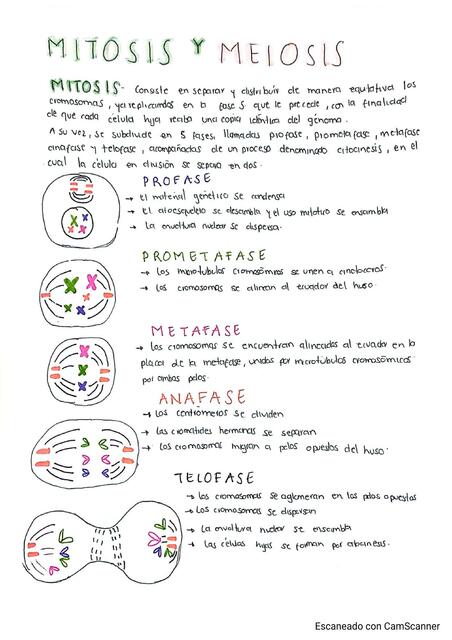 MITOSIS Y MEIOSIS
MITOSIS- Consiste en separar y distribuir de manera equitativa los
cromosomas, ya replicandos en la fase S que le precede, con la finalidad
de que cada célula hija reciba una copia idéntica del génoma.
A su vez, se subdivide en 5 fases, llamadas profase, prometafase, metafase
anafase y telofase, acompañadas de un proceso denominado citocinesis, en el
cual la célula en división se separa en dos.
PROFASE
→ El material genético se condensa
→ El citoesqueleto se desambla y el uso mitotico se ensambla
→ La envoltura nuclear se dispersa.
PROMETAFASE
→ Los microtubulos cromosómicos se unen a cinetocoros.
→ Los cromosomas se alinean al ecuador del huso.
METAFASE
→ Los cromosomas se encuentran alineadas al ecuador en la
placa de la metafase, unidos por microtúbulos cromosómicos
por ambas polos.
ANAFASE
→ Los centrómeros se dividen
→ Las cromatides hermanas se separan
→ Los cromosomas migran a polos opuestos del huso.
TELOFASE
→ Los cromosomas se aglomeran en los polos opuestos
→ Los cromosomas se dispersan
→ La envoltura nuclear se ensambla
→ Las células hijas se forman por
Escaneado con CamScanner